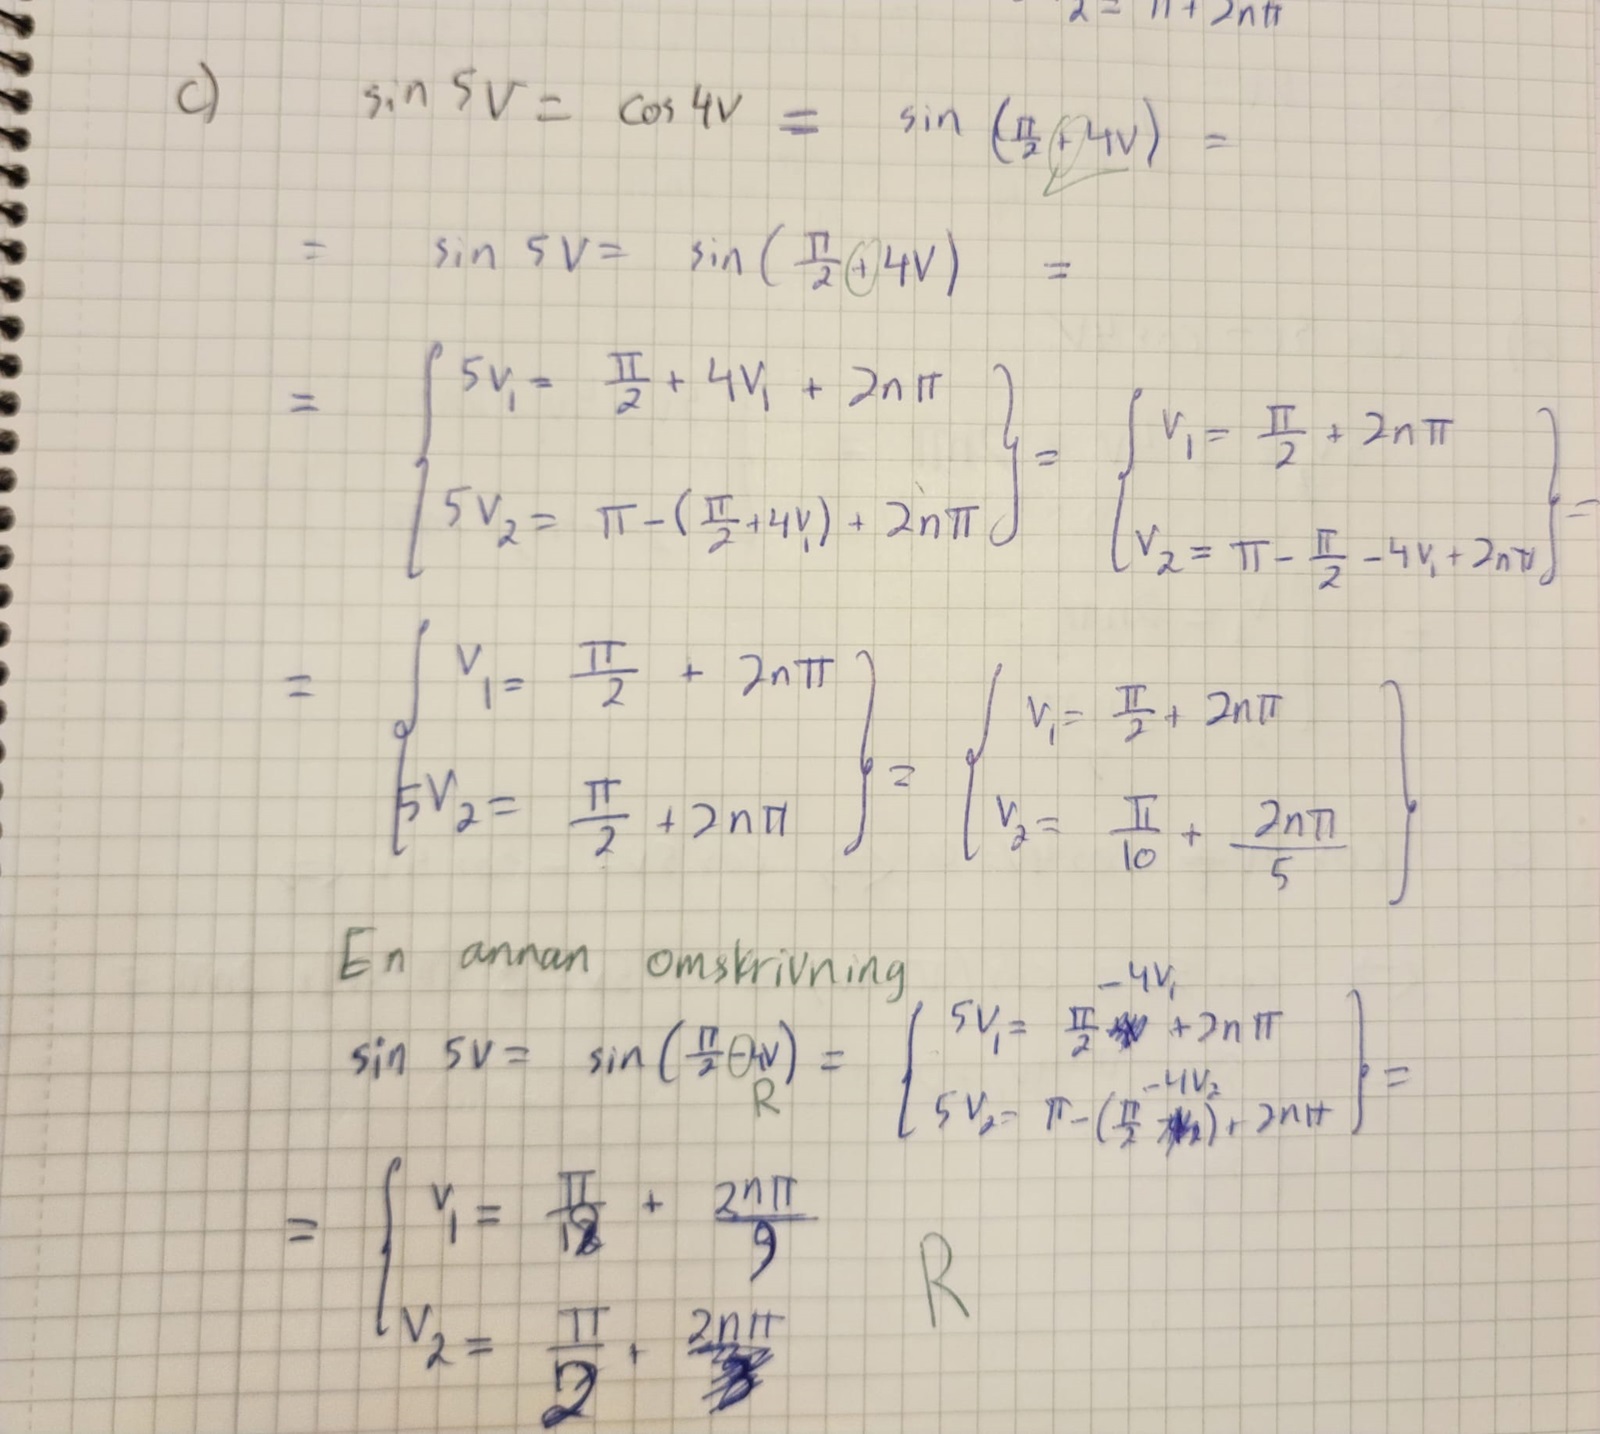 2 = π + 2nπ
c) sin 5V = cos 4V = sin (π/2 + 4V) =
= sin 5V = sin (π/2 + 4V) =
= { 5V₁ = π/2 + 4V₁ + 2nπ } = { V₁ = π/2 + 2nπ } =
{ 5V₂ = π - (π/2 + 4V₁) + 2nπ } { V₂ = π - π/2 - 4V₁ + 2nπ }
= { V₁ = π/2 + 2nπ } = { V₁ = π/2 + 2nπ }
{ 5V₂ = π/2 + 2nπ } { V₂ = π/10 + 2nπ/5 }
En annan omskrivning
sin 5V = sin (π/2 - 4V) = { 5V₁ = π/2 - 4V₁ + 2nπ } =
R { 5V₂ = π - (π/2 - 4V₂) + 2nπ }
= { V₁ = π/18 + 2nπ/9
{ V₂ = π/2 + 2nπ
R